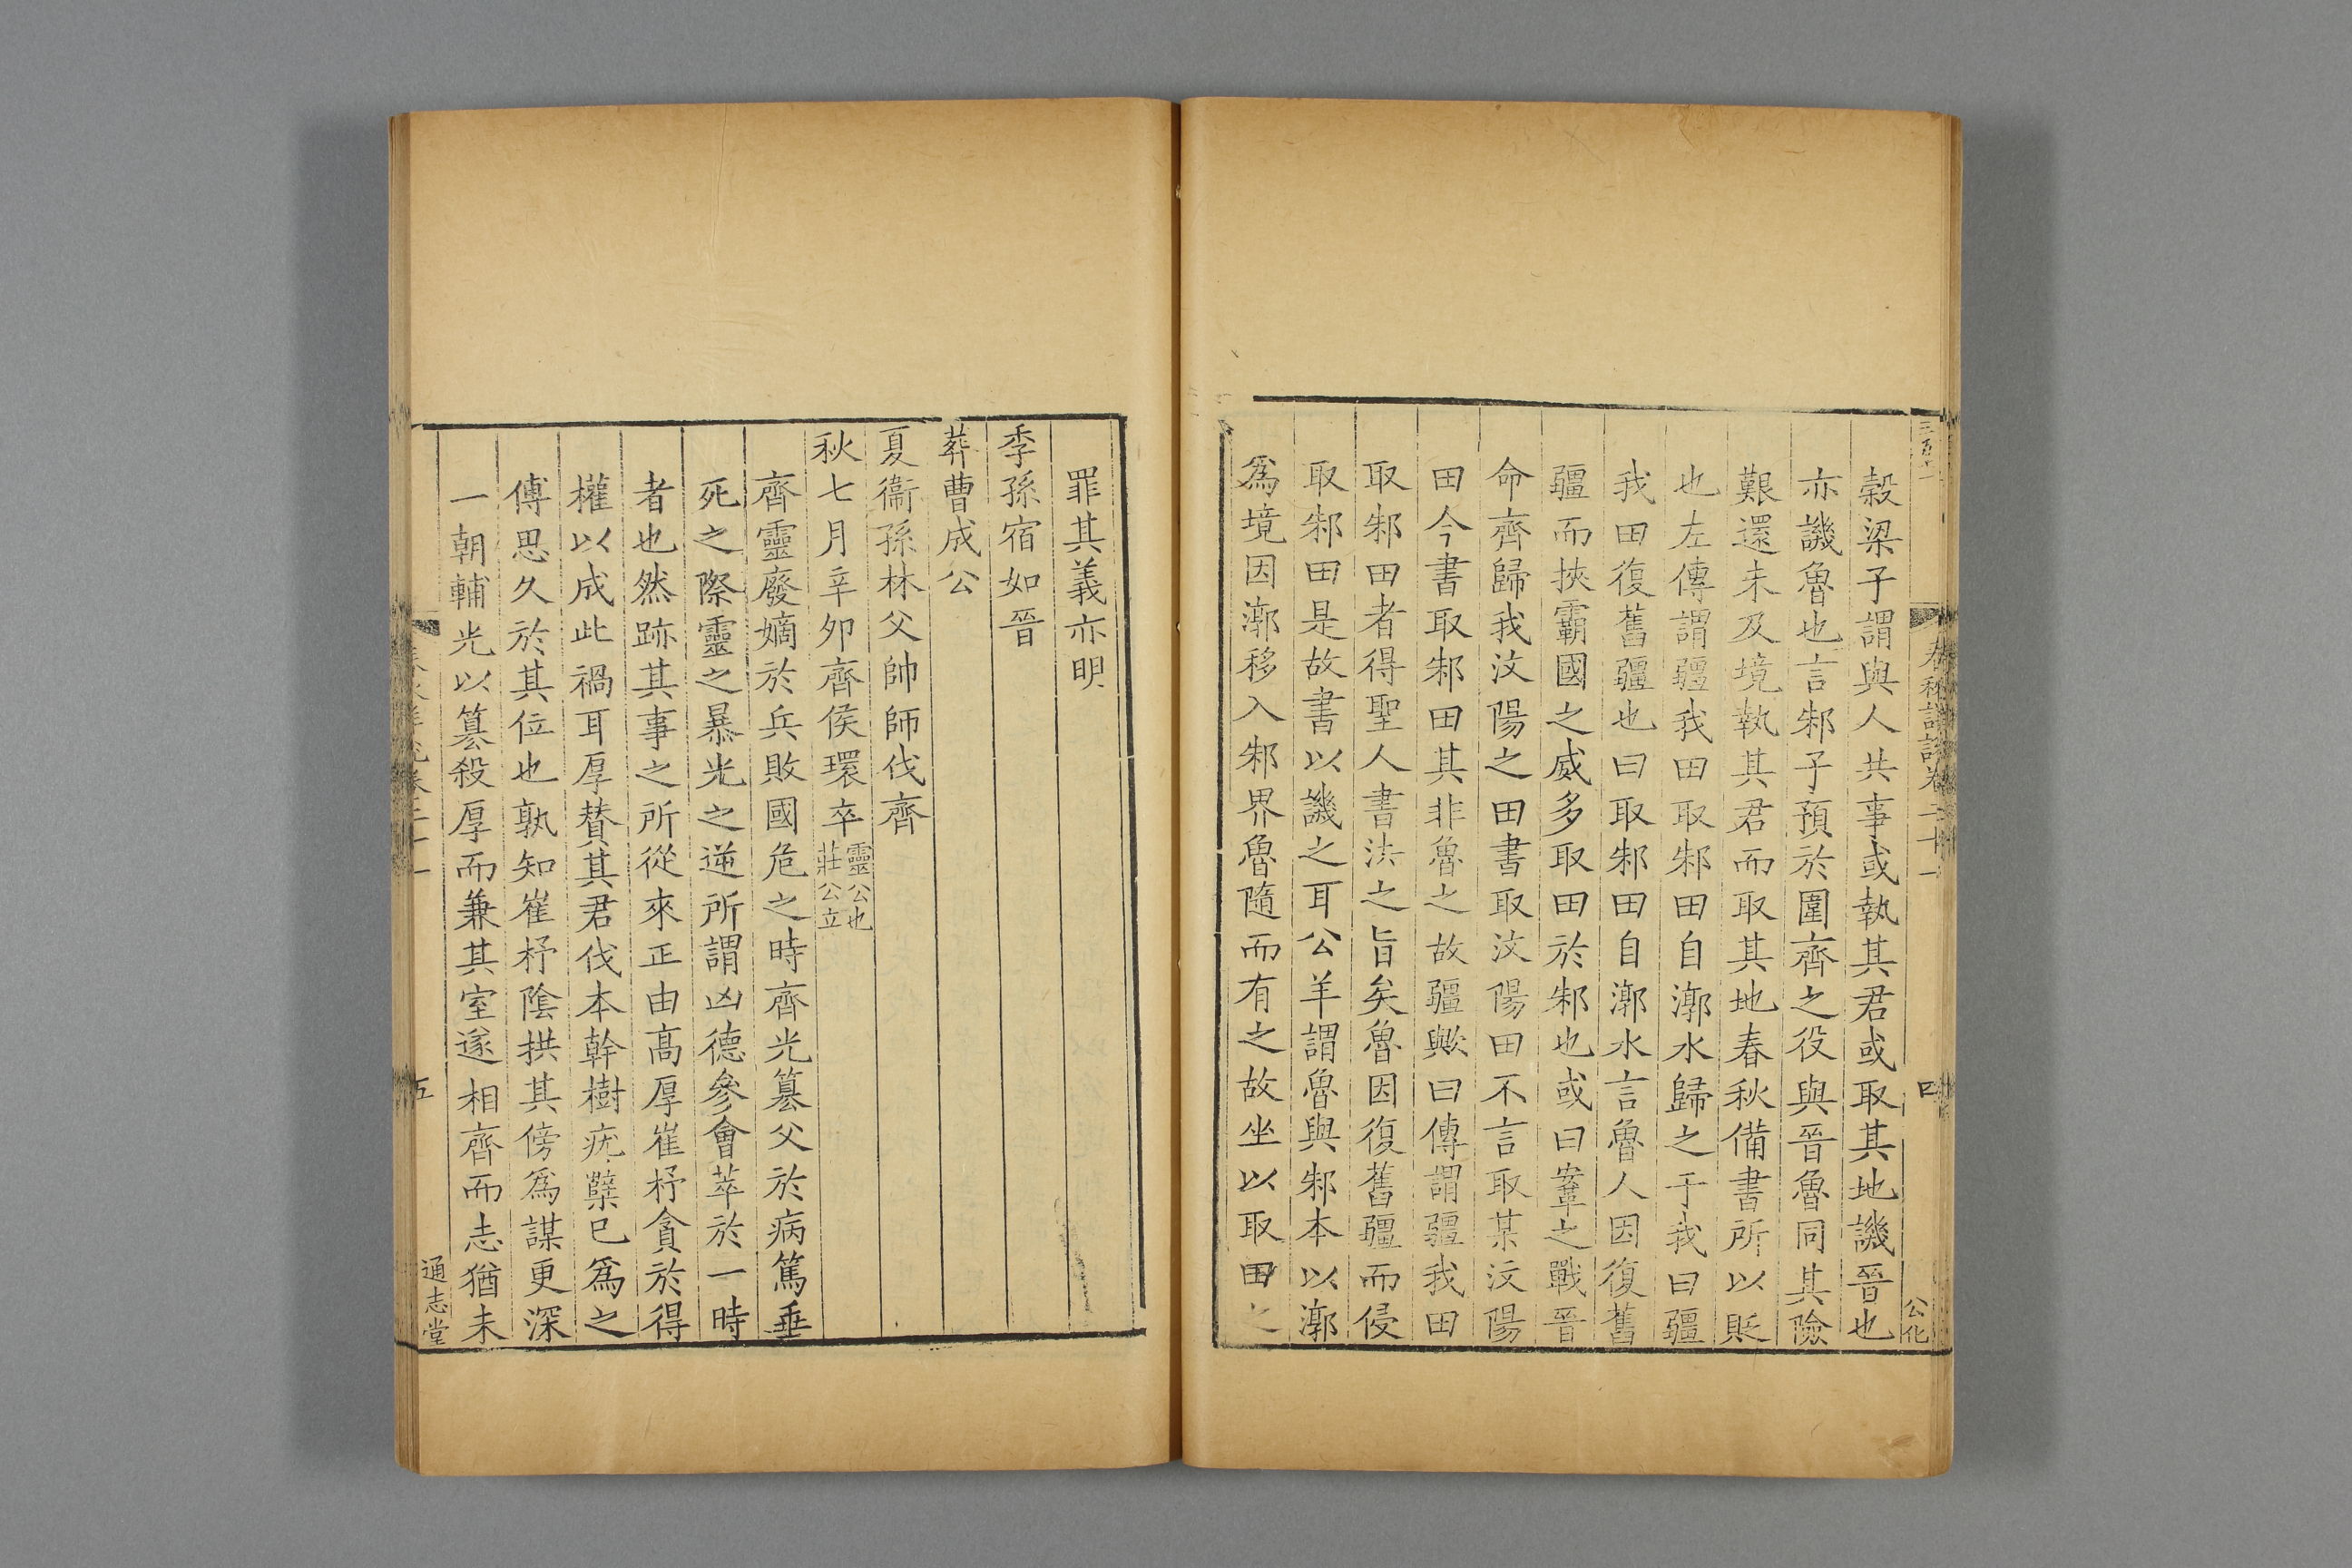 穀梁子謂與人共事或執其君或取其地譏晉也
亦譏魯也言邾子預於圍齊之役與晉魯同其險
艱還未及境執其君而取其地春秋備書所以貶
也左傳謂疆我田取邾田自漷水歸之于我曰疆
我田復舊疆也曰取邾田自漷水言魯人因復舊
疆而挾霸國之威多取田於邾也或曰鞌之戰晉
命齊歸我汶陽之田書取汶陽田不言取某汶陽
田今書取邾田其非魯之故疆歟曰傳謂疆我田
取邾田者得聖人書法之旨矣魯因復舊疆而侵
取邾田是故書以譏之耳公羊謂魯與邾本以漷
為境因漷移入邾界魯隨而有之故坐以取田之
春秋詳說卷二十一
四
公化
罪其義亦明
季孫宿如晉
葬曹成公
夏衞孫林父帥師伐齊
秋七月辛卯齊侯環卒靈公也莊公立
齊靈廢嫡於兵敗國危之時齊光簒父於病篤垂
死之際靈之暴光之逆所謂凶德參會萃於一時
者也然跡其事之所從來正由髙厚崔杼貪於得
權以成此禍耳厚賛其君伐本幹樹疣櫱已為之
傅思久於其位也孰知崔杼陰拱其傍為謀更深
一朝輔光以簒殺厚而兼其室遂相齊而志猶未
五
通志堂